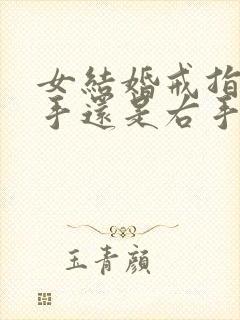 女結婚戒指
手還是右手
玉青顏